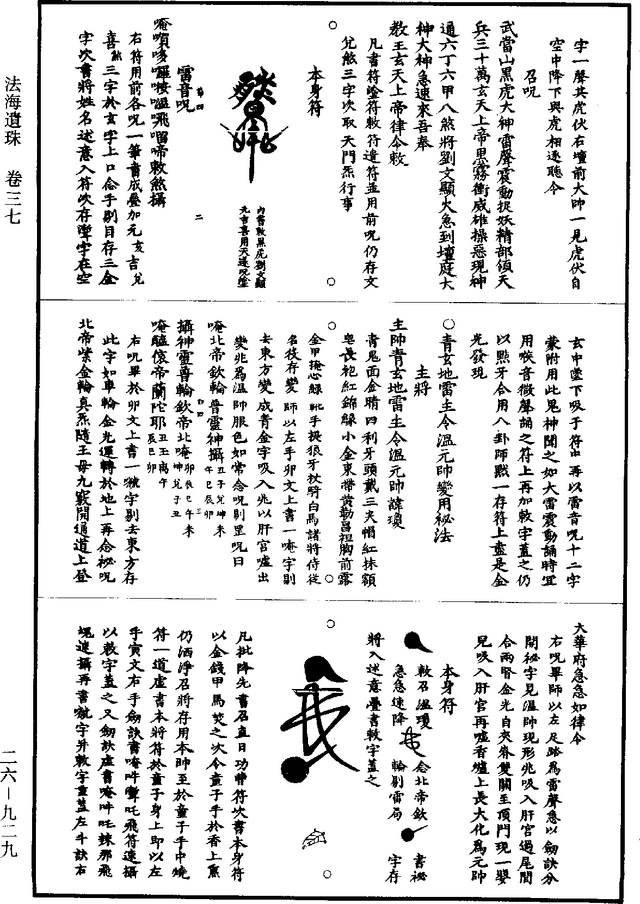 法海遺珠 卷三七
二六—九二九
字一聲共虎伏右壇前大帥一見虎伏自
空中降下與虎相逐聽令
召呪
武當山黑虎大神雷聲震動捉妖精部領天
兵三十萬玄天上帝黑霧衝威雄操惡現神
通六丁六甲八煞將劉文顯火急到壇庭大
神大神急速來吾奉
教主玄天上帝律令敕
凡書符唸符敕符遣符並用前呪仍存文
兌煞三字次取天門炁行事
本身符
內書敕黑虎劉文顯
元吉喜用天蓬呪唸
雷音呪
右符用前各呪一筆書成疊加元亥吉兌
喜煞三字於玄字上口念手剔目存三金
字次書將姓名述意入符次存霐字在空
玄中墜下吸于符中再以雷音呪十二字
蒙附用此鬼神聞之如大雷震動誦時宜
用喉音微聲誦之符上再加敕字蓋之仍
以點牙合用八卦師戳一存符上盡是金
光發現
○青玄地雷主令溫元帥變用秘法
主將
主帥青玄地雷主令溫元帥諱瓊
青鬼面金睛四利牙頭戴三尖帽紅抹額
皂長袍紅錦綠小金束帶黃勒帛袒胸前露
金甲掩心綠靴手提狼牙杖騎白馬諸將侍從
名役存變師以左手卯文上書一唵字剔
去東方變成青金字吸入兆以肝宮噓出
變兆為溫帥服色如常念呪剔罡呪曰
唵北帝欽輪普靈神攝
攝神靈普輪欽帝北唵
右呪畢於卯文上書一𪐴字剔去東方存
此字如車輪金光運轉於地上再念秘呪
北帝紫金輪真炁隨王母九竅開通道上登
大華府急急如律令
右呪畢師以左足踏為雷聲急以劍訣分
開秘字見溫帥現形兆吸入肝宮過尾閭
合兩腎金光自夾脊雙關至頂門現一嬰
兒吸入肝宮再噓香爐上長大化為元帥
本身符
敕召溫瓊
急急速降
念北帝欽
輪剔雷局
書秘
字存
將入述意疊書敕字蓋之
凡批降先書召直日功曹符次書本身符
以金錢甲馬焚之次令童子手於香上熏
仍洒淨召將存用本帥至於童子手中燒
符一道虛書本將符於童子身上即以左
手寅文右手劍訣書唵吽霐吒飛符速攝
以敕字蓋之又劍訣虛書唵吽吒辣那飛